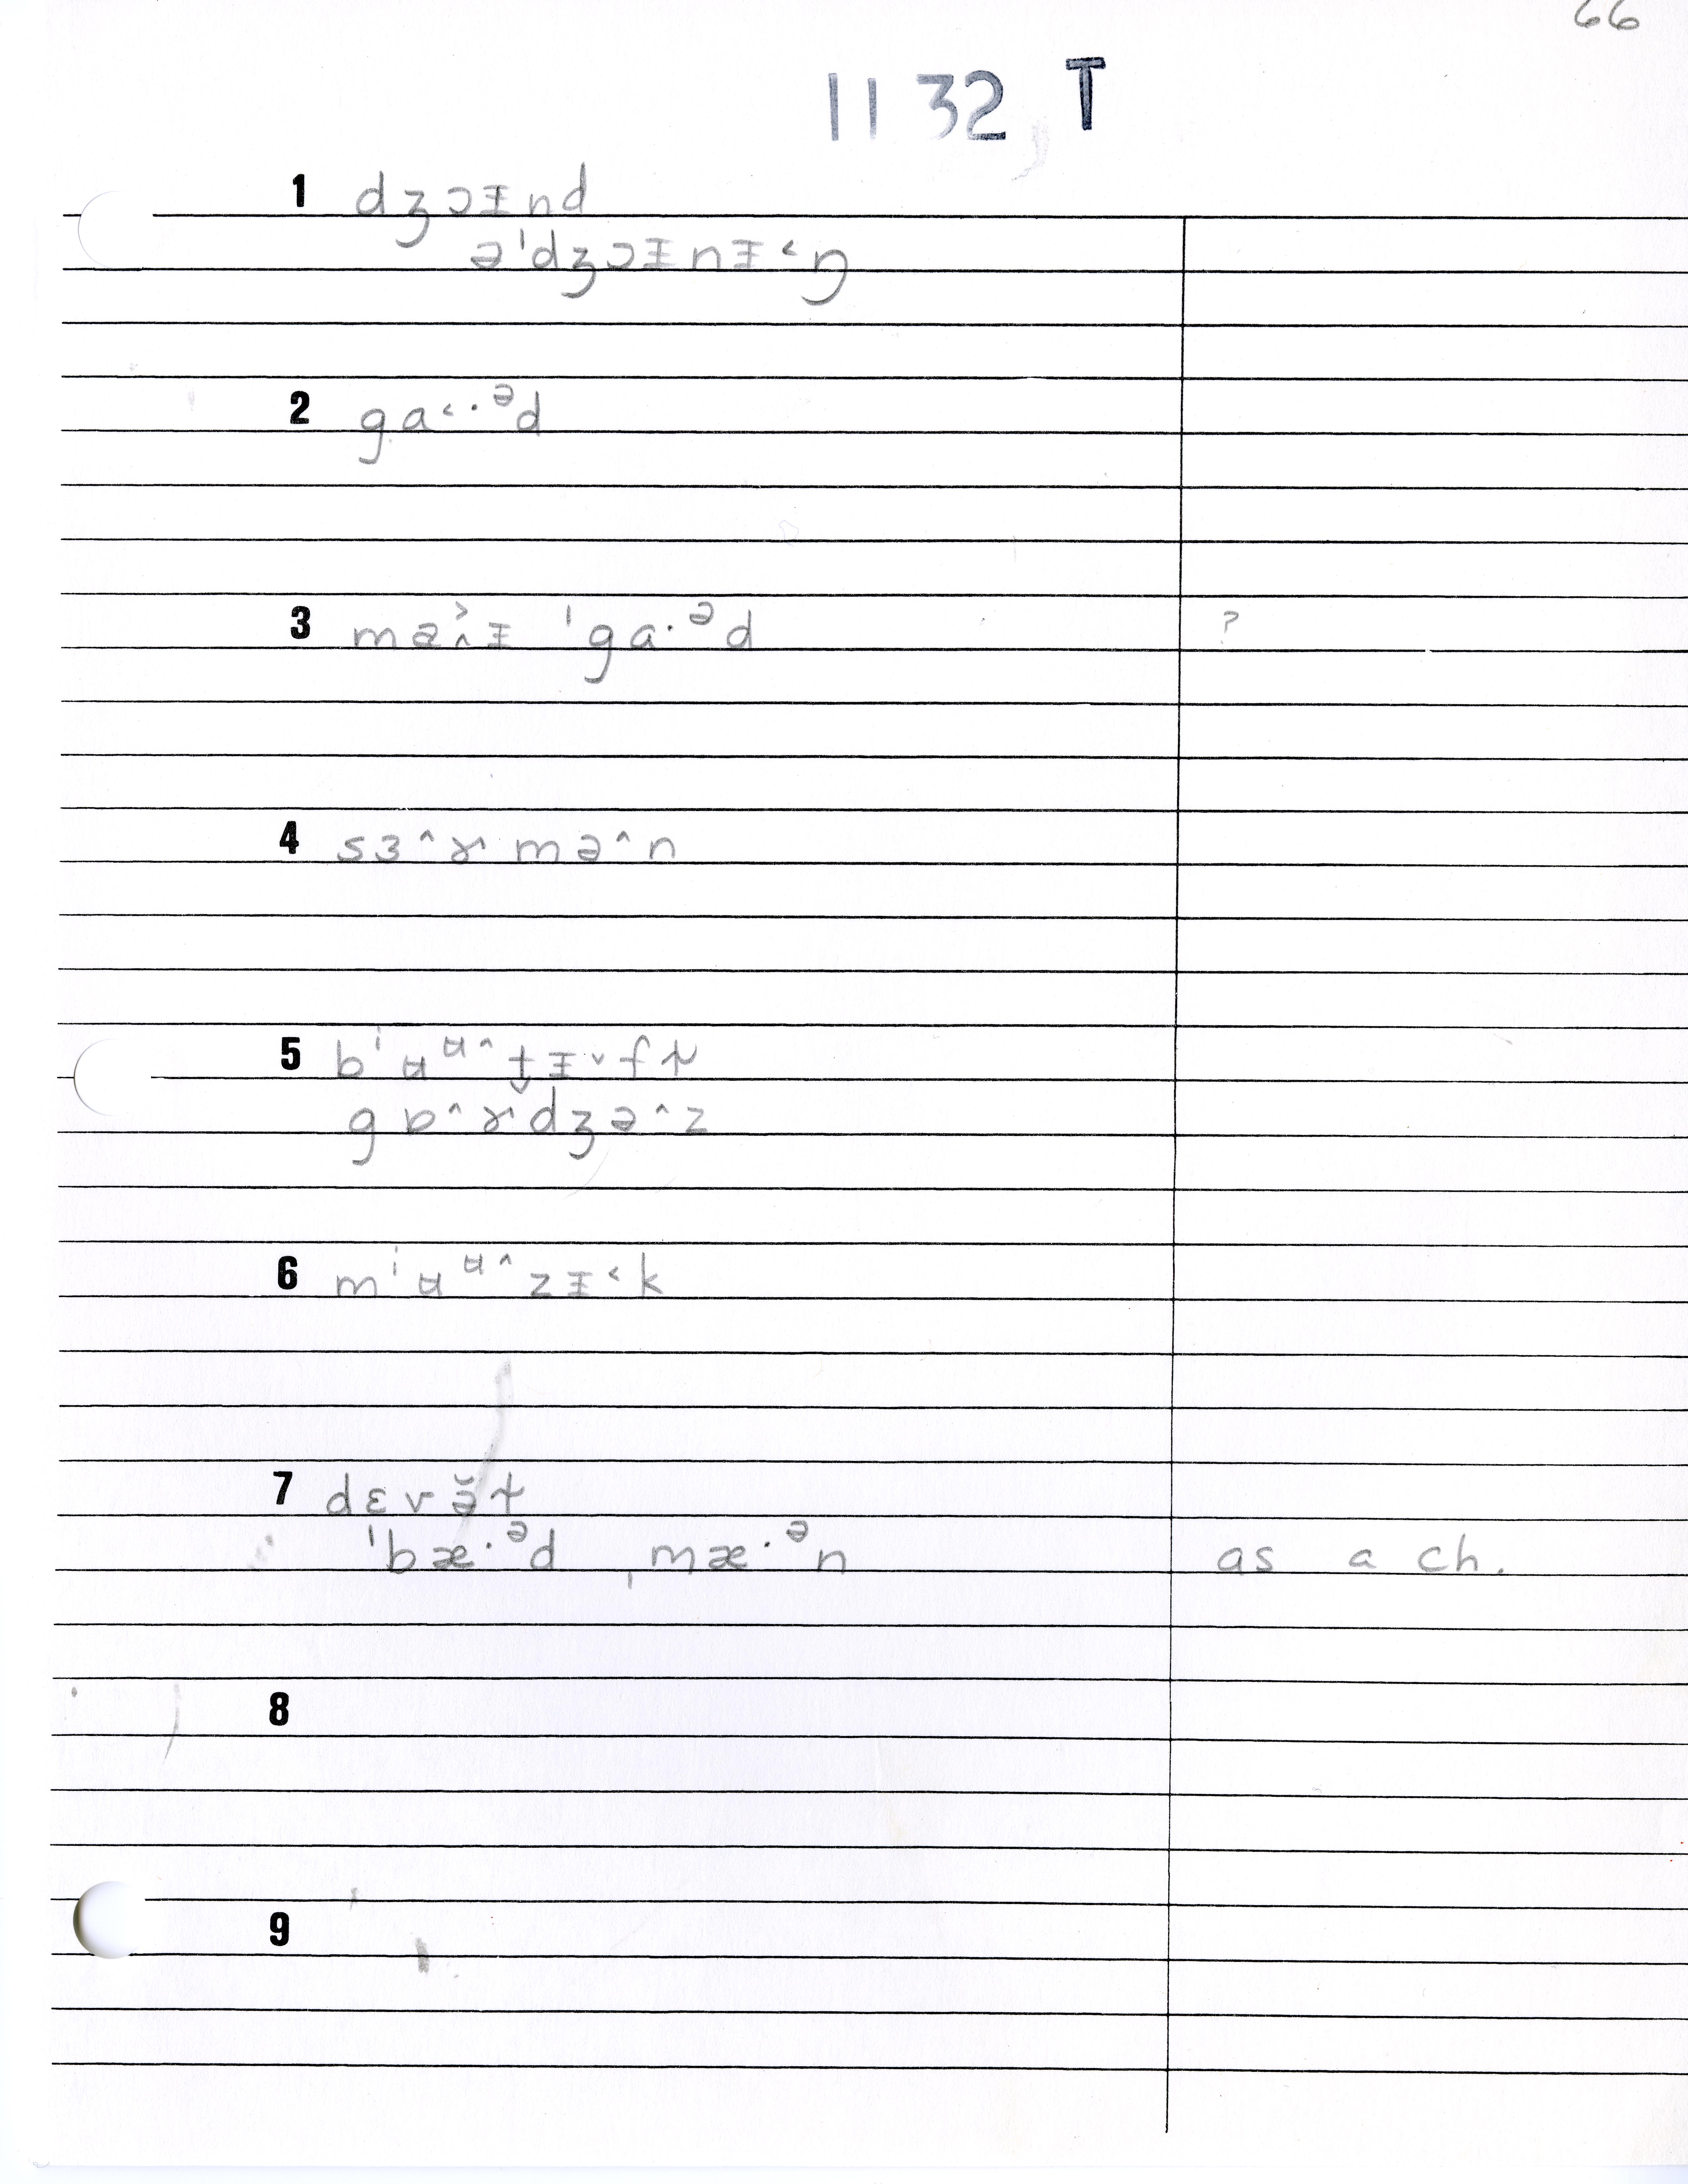 66
1132 T
1 dʒɔɪnd
ə'dʒɔɪnɪ˂ŋ
2 ga˂·ᵊd
3 mɐ˄˃ɪ 'ga·ᵊd ?
4 sɜ˄ɚ mə˄n
5 bⁱʉᵾ˄t̬ɪ˅fɫ
gɒ˄ɚdʒə˄z
6 mⁱʉᵾ˄zɪ˂k
7 dɛvə̆ɫ
'bæ·ᵊd ˌmæ·ᵊn as a ch.
8
9